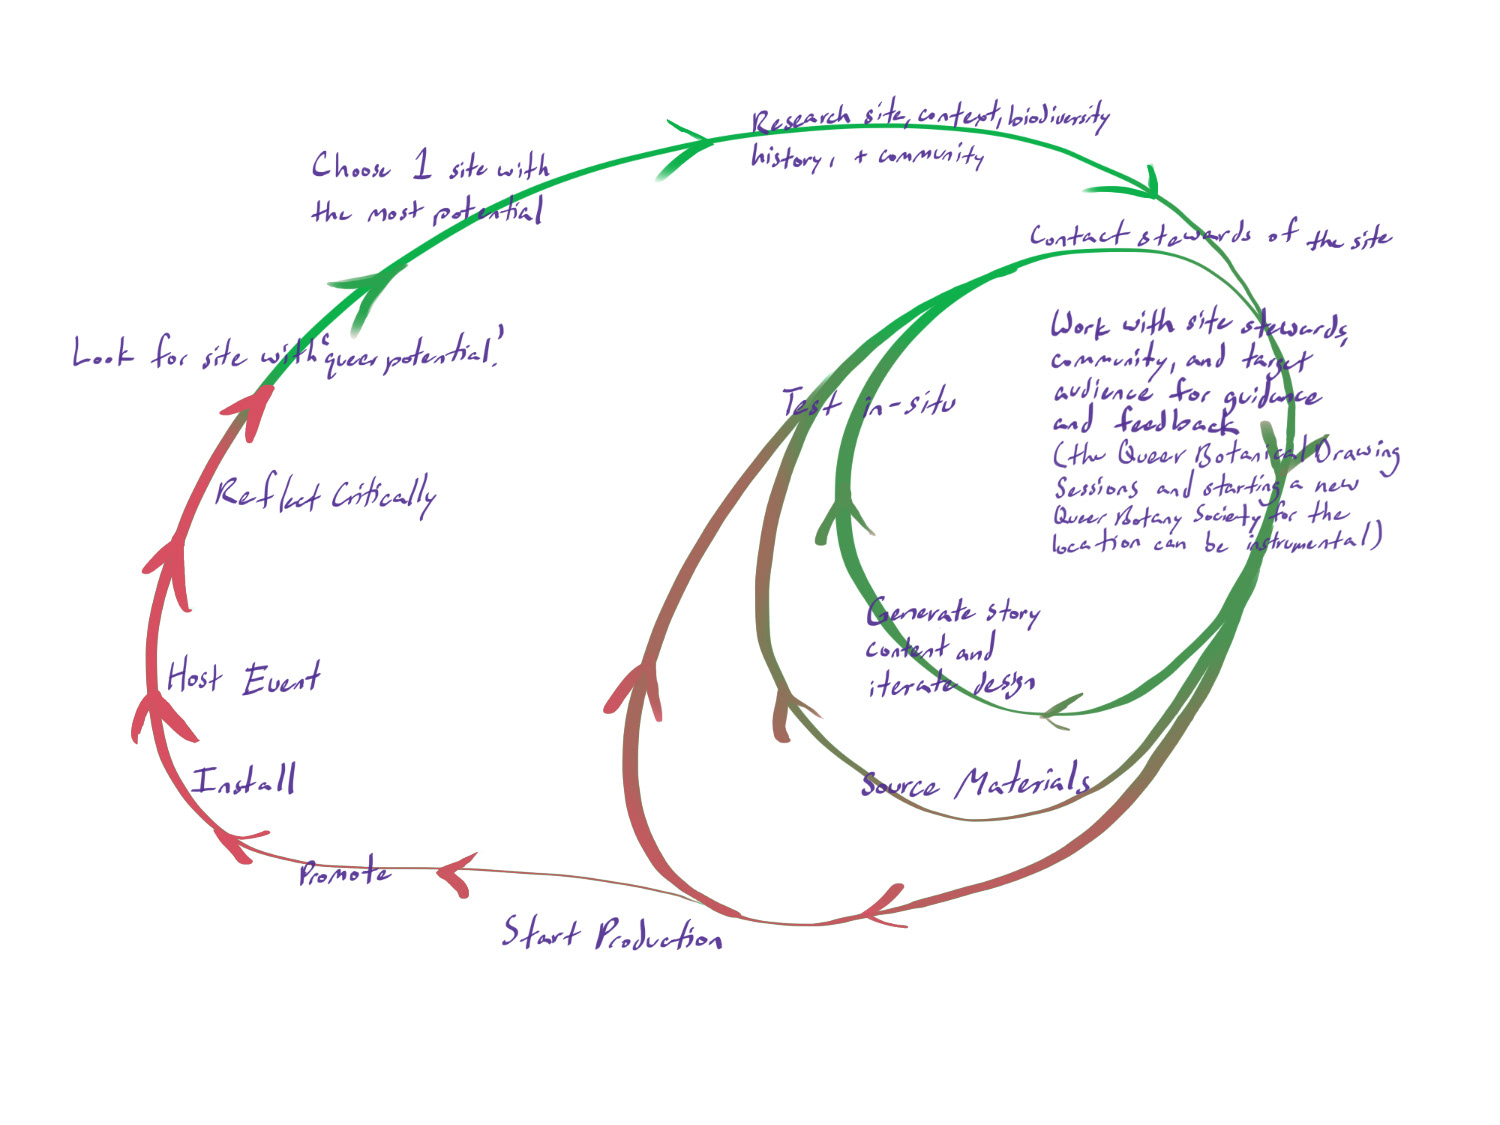 Research site, context, biodiversity
history, + community
Choose 1 site with
the most potential
Contact stewards of the site
Look for site with 'queer potential.'
Work with site stewards,
community, and target
audience for guidance
and feedback
(the Queer Botanical Drawing
Sessions and starting a new
Queer Botany Society for the
location can be instrumental)
Test in-situ
Reflect Critically
Generate story
content and
iterate design
Host Event
Source Materials
Install
Promote
Start Production